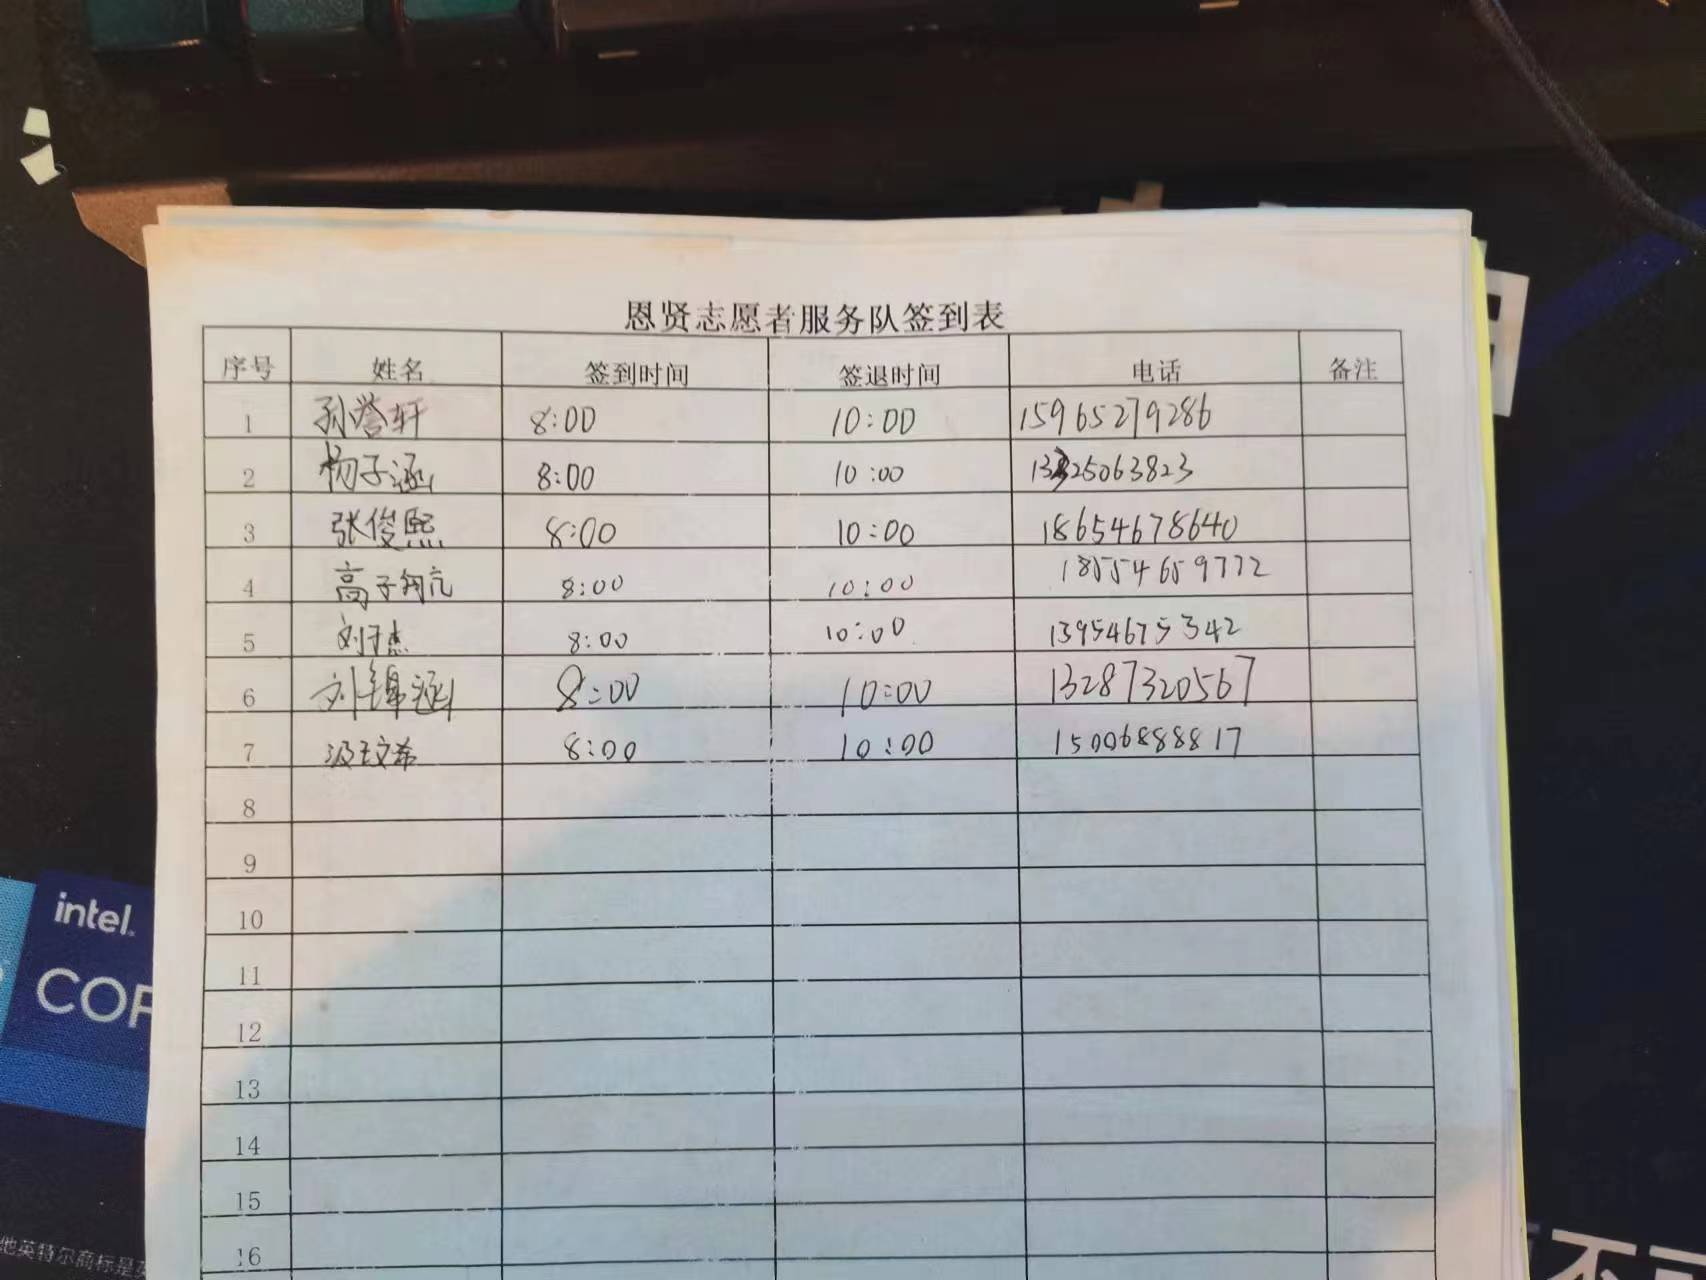 恩贤志愿者服务队签到表
序号 姓名 签到时间 签退时间 电话 备注
1 孙誉轩 8:00 10:00 15965279286
2 杨子涵 8:00 10:00 13325063823
3 张俊熙 8:00 10:00 18654678640
4 高子翔 8:00 10:00 18554659772
5 刘于杰 8:00 10:00 13954675342
6 刘锦涵 8:00 10:00 13287320567
7 汲文希 8:00 10:00 15006888817
8
9
10
11
12
13
14
15
16
intel.
COR
他英特尔商标是英